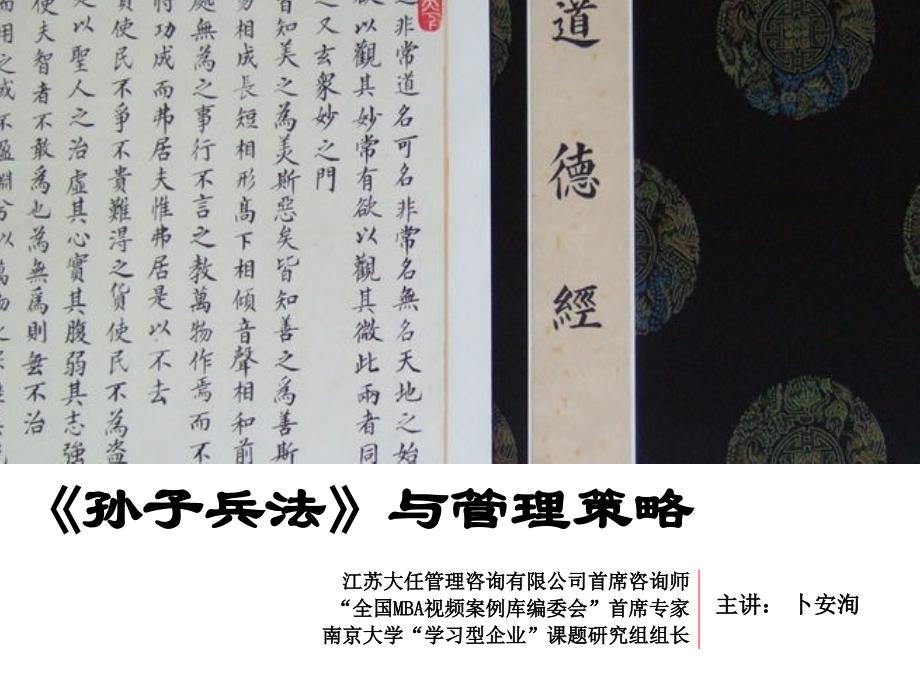 非常道名可名非常名無名天地之始
欲以觀其妙常有欲以觀其徼此兩者同
之又玄眾妙之門
皆知美之為美斯惡矣皆知善之為善斯
易相成長短相形高下相傾音聲相和前
處無為之事行不言之教萬物作焉而不
功成而弗居夫惟弗居是以不去
使民不爭不貴難得之貨使民不為盜
以聖人之治虛其心實其腹弱其志強
使夫智者不敢為也為無為則無不治
用之或不盈淵兮以萬物之
道德經
《孙子兵法》与管理策略
江苏大任管理咨询有限公司首席咨询师
“全国MBA视频案例库编委会”首席专家
南京大学“学习型企业”课题研究组组长
主讲： 卜安洵